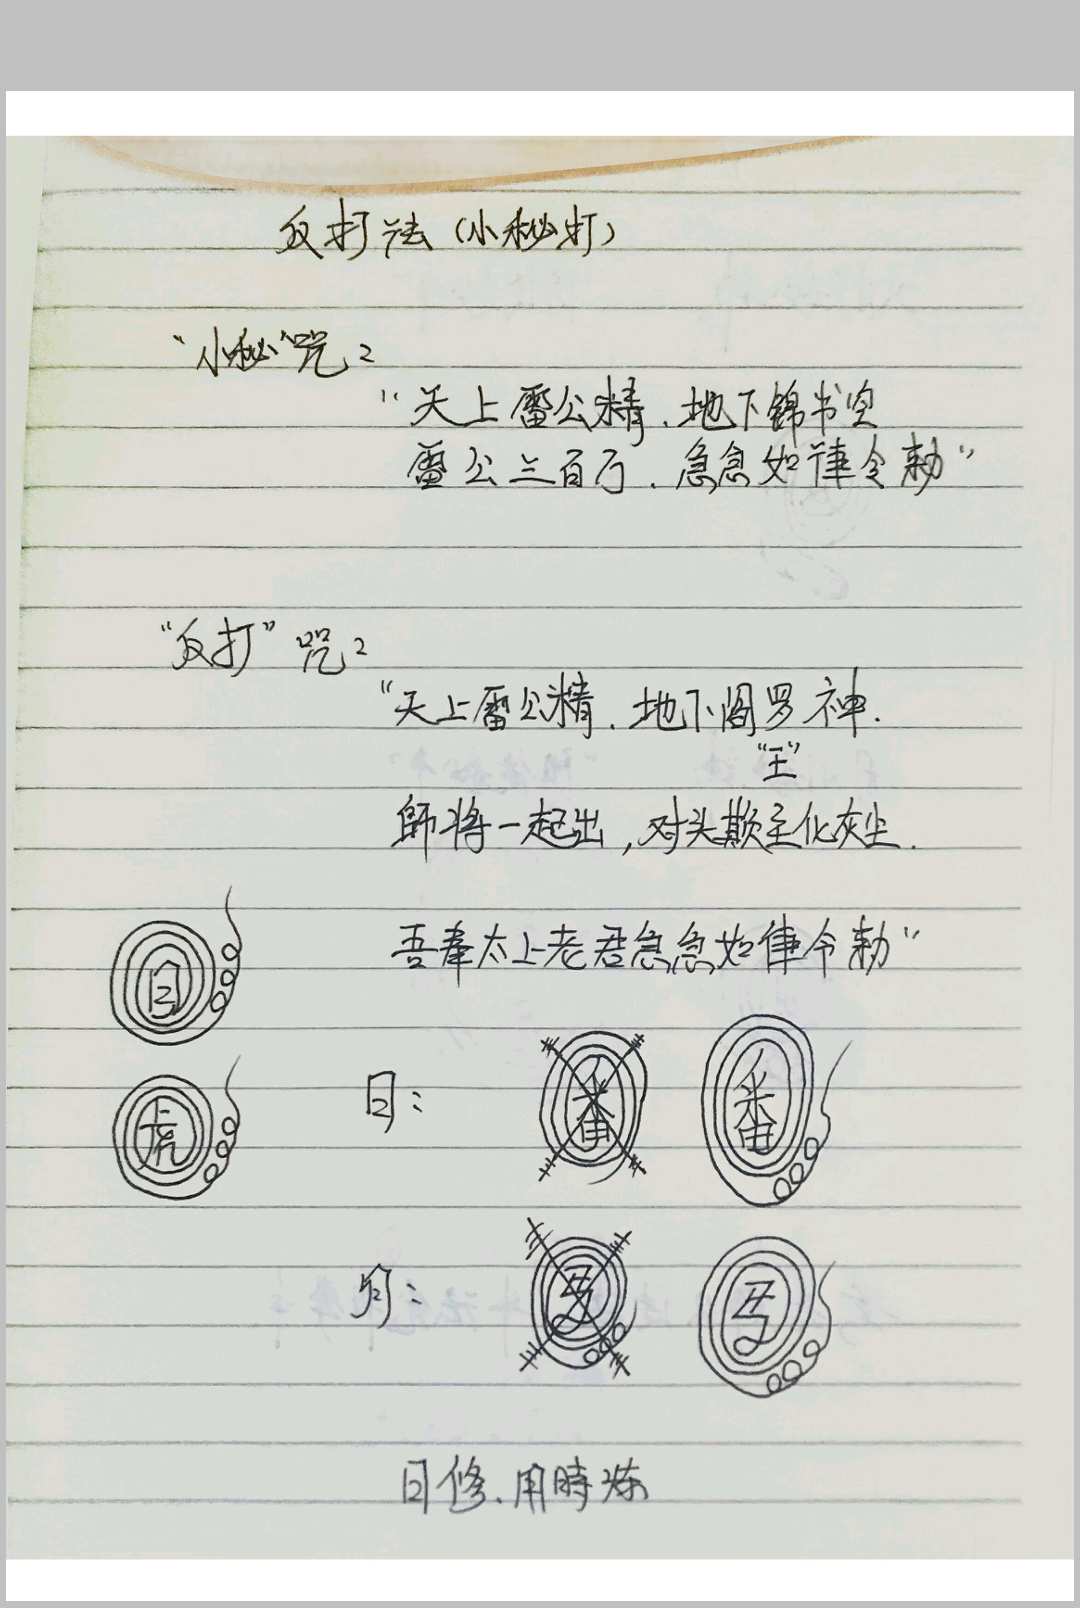 反打法（小秘打）
“小秘”咒：
“天上雷公精、地下锦书
雷公三百万、急急如律令勅”
“反打”咒：
“天上雷公精、地下阎罗神.
“王”
師将一起出，对头欺主化灰尘.
吾奉太上老君急急如律令勅”
日
虎
日：
番
番
日修、用時炼